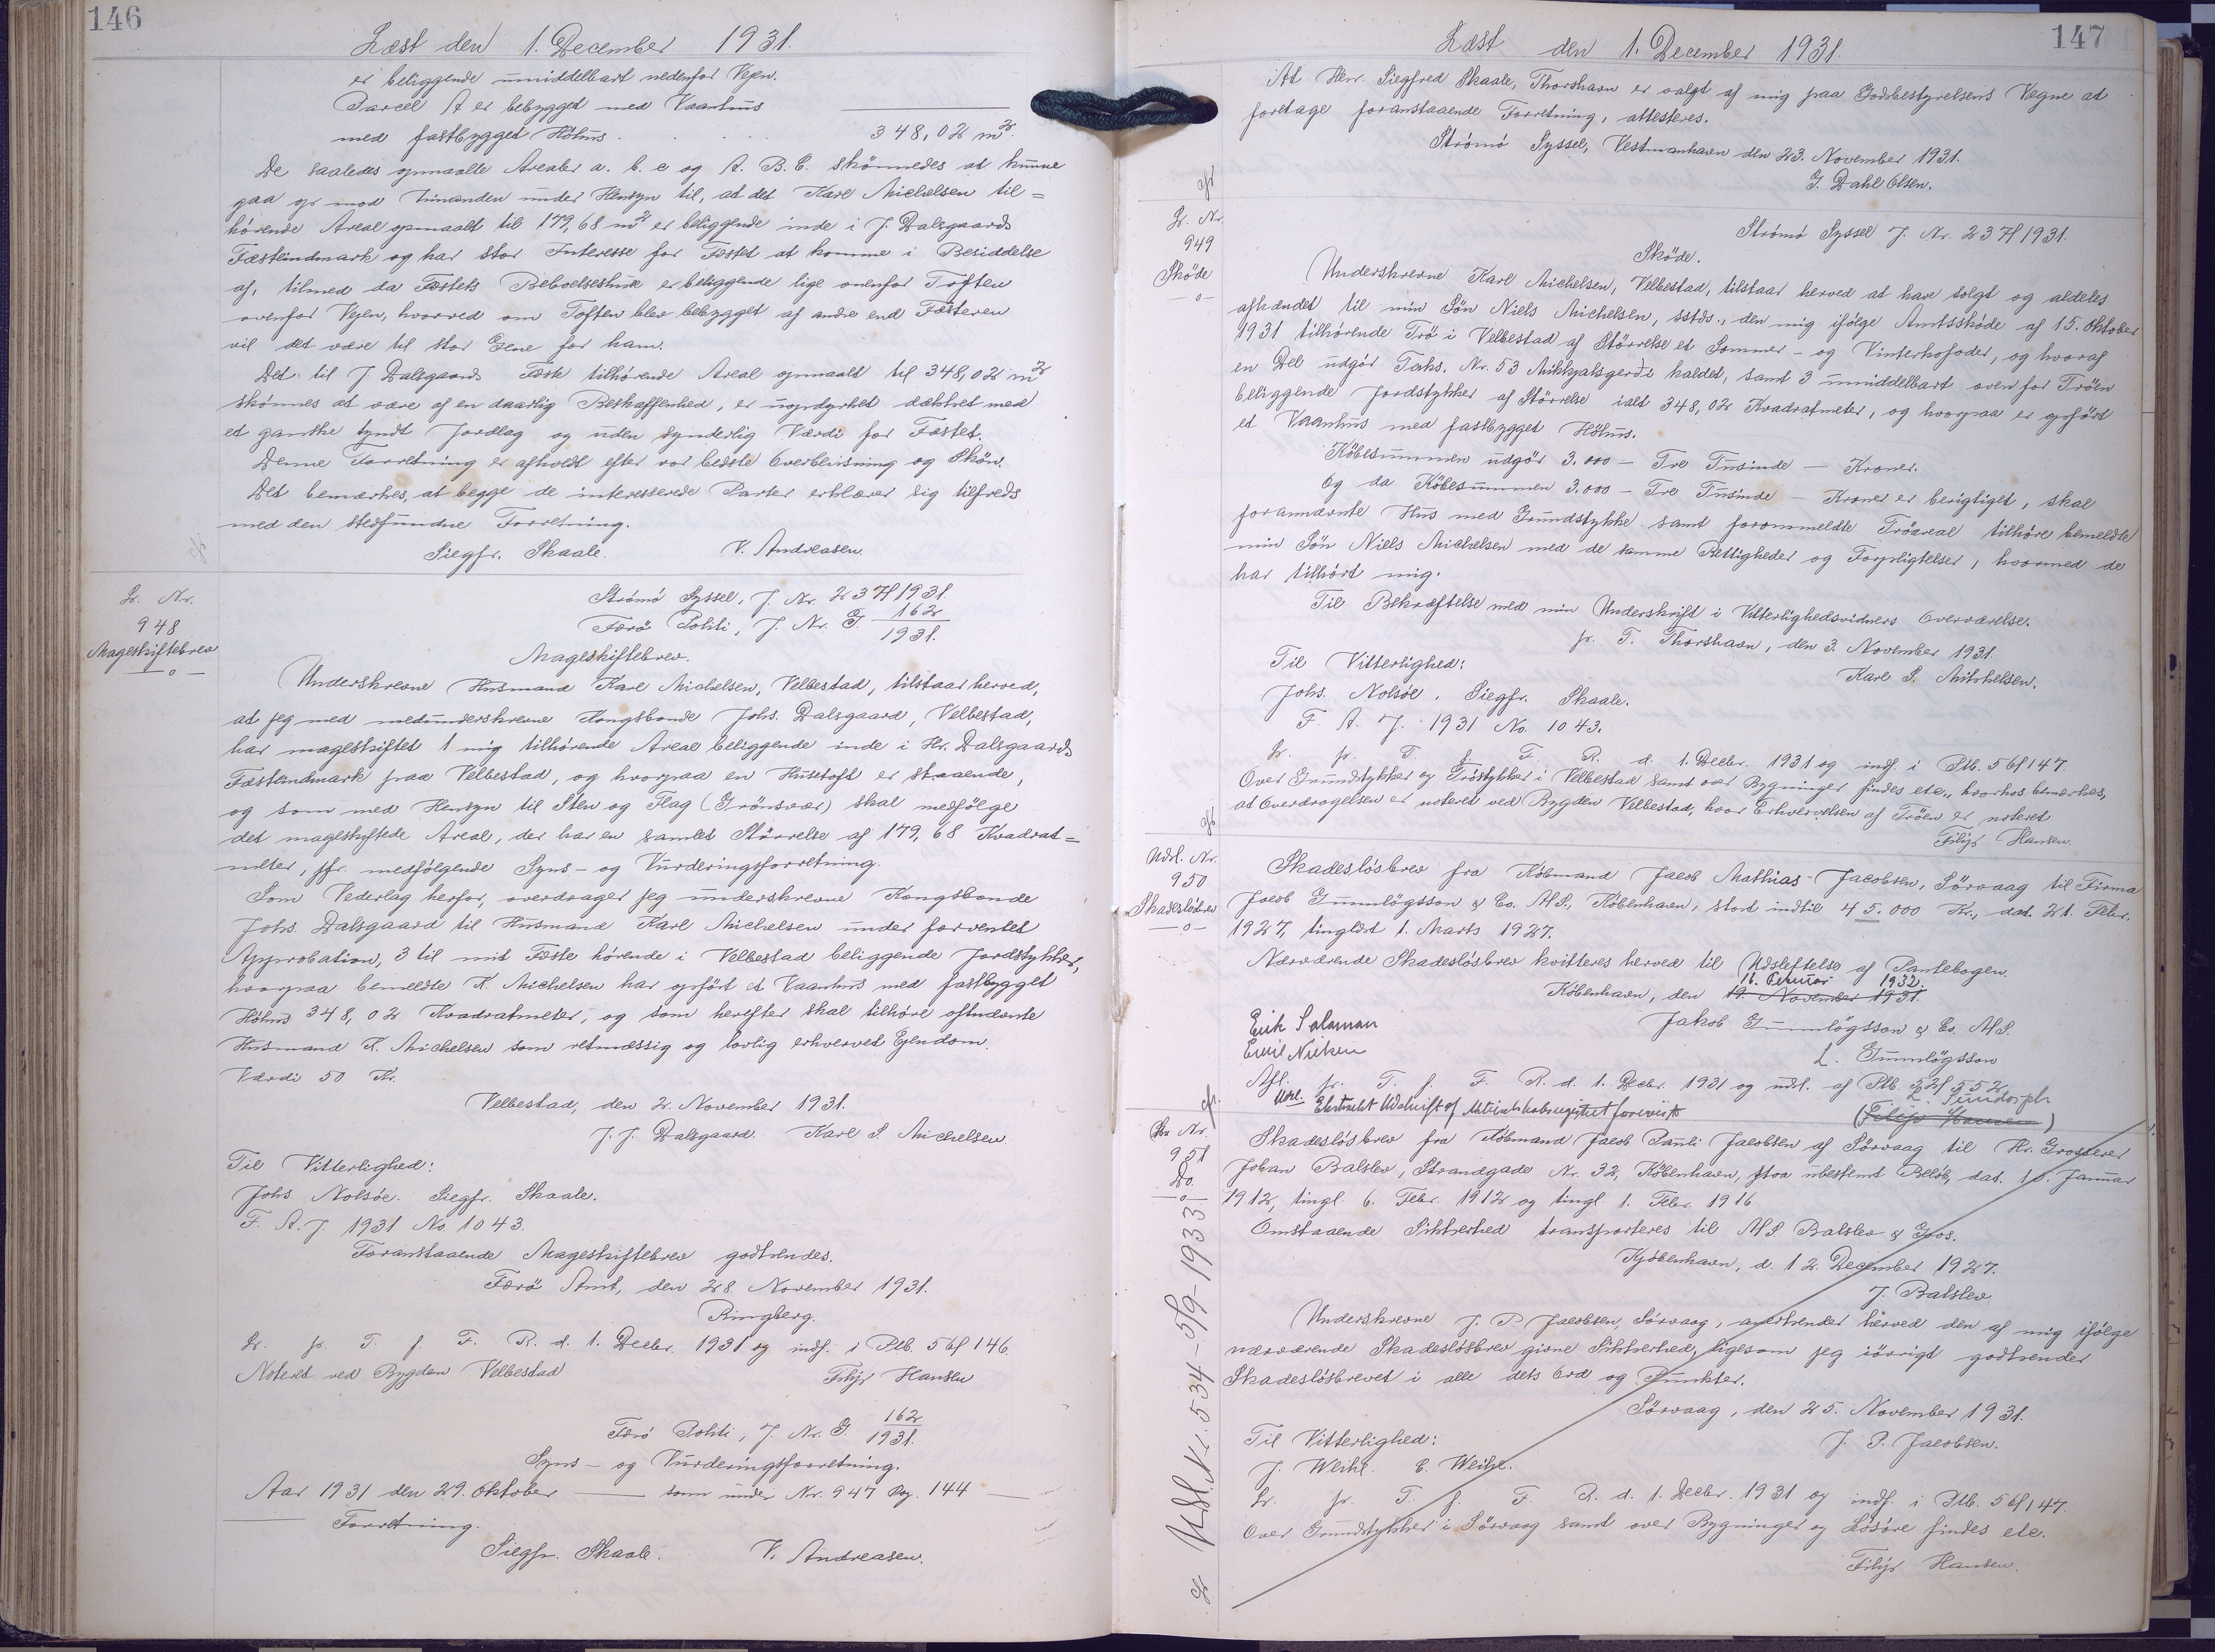 146
Læst den 1. December 1931.
er beliggende umiddelbart nedenfor Vejen.
Parcel A er bebygget med Vaanhus
med fastbygget Höhus. 348,02 m²
De saaledes opmaalte Arealer a. b. c og A. B. C. skönnedes at kunne
gaa op mod hinanden under Hensyn til, at det Karl Michelsen til=
hørende Areal opmaalt til 179,68 m² er beliggende inde i J. Dalsgaards
Fæsteindmark og har stor Interesse for Fæstet at komme i Besiddelse
af, tilmed da Fæstets Beboelseshus er beliggende lige ovenfor Toften
ovenfor Vejen, hvorved om Toften blev bebygget af andre end Fæsteren
vil det være til stor Gene for ham.
Det til J Dalsgaards Fæste tilhörende Areal opmaalt til 348,02 m²
skönnes at være af en daarlig Beskaffenhed, er uopdyrket dækket med
et ganske tyndt Jordlag og uden synderlig Værdi for Fæstet.
Denne Forretning er afholdt efter vor bedste Overbevisning og Skön.
Det bemærkes, at begge de interesserede Parter erklærer sig tilfreds
med den stedfundne Forretning.
Siegfr. Skaale. V. Andreasen.
Lr. Nr.
948
Mageskiftebrev
Strömö Syssel, J. Nr. 237/1931.
Færö Politi, J. Nr. G 162/1931.
Mageskiftebrev.
Underskrevne Husmand Karl Michelsen, Velbestad, tilstaar herved,
at jeg med medunderskrevne Kongsbonde Johs. Dalsgaard, Velbestad,
har mageskiftet 1 mig tilhörende Areal beliggende inde i Hr. Dalsgaards
Fæsteindmark paa Velbestad, og hvorpaa en Husetoft er staaende,
og som med Hensyn til Sten og Flag (Grönsvær) skal medfölge
det mageskiftede Areal, der har en samlet Störrelse af 179,68 Kvadrat=
meter, jfr. medfölgende Syns- og Vurderingsforretning.
Som Vederlag herfor, overdrager jeg underskrevne Kongsbonde
Johs. Dalsgaard til Husmand Karl Michelsen under forventet
Approbation, 3 til mit Fæste hörende i Velbestad beliggende Jordstykker,
hvorpaa bemeldte K. Michelsen har opfört et Vaanhus med fastbygget
Höhus 348,02 Kvadratmeter, og som herefter skal tilhöre ofnævnte
Husmand K. Michelsen som retmæssig og lovlig erhvervet Ejendom.
Værdi 50 Kr.
Velbestad, den 2. November 1931.
J. J. Dalsgaard. Karl S. Michelsen.
Til Vitterlighed:
Johs. Nolsöe. Siegfr. Skaale.
F. A. J. 1931 No. 1043.
Foranstaaende Mageskiftebrev godkendes.
Færö Amt, den 28 November 1931.
Ringberg.
Lr. pr. T. f. F. R. d. 1. Decbr. 1931 og indf. i Ptb. 5 bf 146
Noteret ved Bygden Velbestad
Filip Hansen
Færö Politi, J. Nr. G 162/1931.
Syns- og Vurderingsforretning.
Aar 1931 den 29. Oktober — som under Nr. 947 Pag. 144 —
— Forretning.
Siegfr. Skaale. V. Andreasen.
147
Læst den 1. December 1931.
At Herr. Siegfred Skaale, Thorshavn er valgt af mig paa Godsbestyrelsens Vegne at
foretage foranstaaende Forretning, attesteres.
Strömö Syssel, Vestmanhavn den 23. November 1931.
J. Dahl Olsen.
Lr. Nr.
949
Sköde
Strömö Syssel J. Nr. 237/1931.
Sköde.
Underskrevne Karl Michelsen, Velbestad, tilstaar herved at have solgt og aldeles
afhændet til min Sön Niels Michelsen, sstds., den mig ifölge Amtssköde af 15. Oktober
1931 tilhörende Trö i Velbestad af Störrelse et Sommer- og Vinterkofoder, og hvoraf
en Del udgör Taks. Nr. 53 Mikkjalsgerði kaldet, samt 3 umiddelbart ovenfor Tröen
beliggende Jordstykker af Störrelse ialt 348,02 Kvadratmeter, og hvorpaa er opfört
et Vaanhus med fastbygget Höhus.
Köbesummen udgör 3.000 — Tre Tusinde — Kroner.
Og da Köbesummen 3.000 — Tre Tusinde — Kroner er berigtiget, skal
forannævnte Hus med Grundstykke samt forommeldte Tröareal tilhöre bemeldte
min Sön Niels Michelsen med de samme Rettigheder og Forpligtelser, hvormed de
har tilhört mig.
Til Bekræftelse med min Underskrift i Vitterlighedsvidners Overværelse.
p. T. Thorshavn, den 3. November 1931.
Til Vitterlighed:
Karl S. Mitchelsen.
Johs. Nolsöe. Siegfr. Skaale.
F. A. J. 1931 No. 1043.
Lr. pr. T. f. F. R. d. 1. Decbr. 1931 og indf. i Ptb. 5 bf 147.
Over Grundstykker og Tröstykker i Velbestad samt over Bygninger findes etc., hvorhos bemærkes,
at Overdragelsen er noteret ved Bygden Velbestad, hvor Erhvervelsen af Tröen er noteret
Filip Hansen.
Udsl. Nr.
950
Skadeslösbrev
Skadeslösbrev fra Köbmand Jacob Mathias Jacobsen, Sörvaag til Firma
Jacob Gunnlögsson & Co. A/S., Köbenhavn, stort indtil 45.000 Kr., dat. 21. Febr.
1927, tinglæst 1. Marts 1927.
Nærværende Skadeslösbrev kvitteres herved til Udslettelse af Pantebogen.
16. Februar 1932.
Köbenhavn, den 19. November 1931.
Erik Salomon
Emil Nielsen
Jakob Gunnlögsson & Co. A/S.
L. Gunnlögsson
Afl. pr. T. f. F. R. d. 1. Decbr. 1931 og udsl. af Ptb. 52 f 552
Udsl. Ekstrakt Udskrift af Aktieselskabsregistret forevist
(Filip Hansen)
Lr. Nr.
951
Do.
Skadeslösbrev fra Köbmand Jacob Pauli Jacobsen af Sörvaag til Hr. Grosserer
Johan Balslev, Strandgade Nr. 32, Köbenhavn, stor ubestemt Belöb, dat. 10. Januar
1912, tingl 6. Febr. 1912 og tingl 1. Febr. 1916
Omstaaende Sikkerhed transporteres til A/S. Balslev & Groos.
Kjöbenhavn, d. 12. December 1927.
J. Balslev
Underskrevne J. P. Jacobsen, Sörvaag, anerkender herved den af mig ifölge
nærværende Skadeslösbrev givne Sikkerhed, ligesom jeg iövrigt godkender
Skadeslösbrevet i alle dets Ord og Punkter.
Sörvaag, den 25. November 1931.
Til Vitterlighed:
J. P. Jacobsen.
J. Weihe. E. Weihe.
Lr. pr. T. f. F. R. d. 1. Decbr. 1931 og indf. i Ptb. 5 bf 147.
Over Grundstykker i Sörvaag samt over Bygninger og Lösöre findes etc.
Filip Hansen.
Udsl. Nr. 534 - 5/9-1933